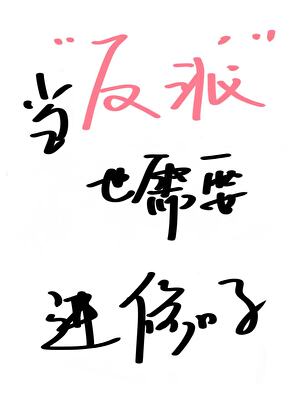 当“反派”
也需要
进修吗